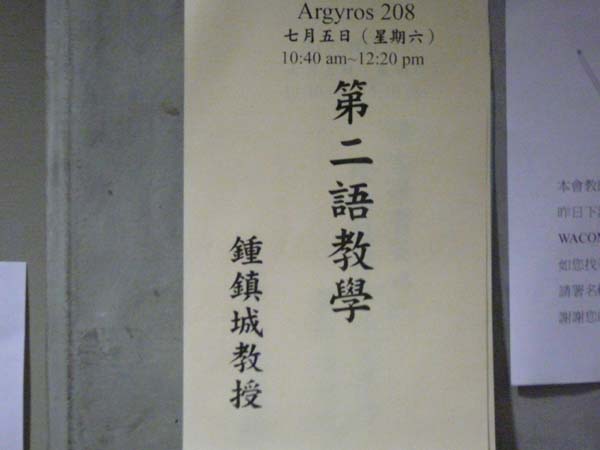 Argyros 208
七月五日（星期六）
10:40 am~12:20 pm
第二語教學
鍾鎮城教授
本會教
昨日下
WACOM
如您找
請署名
謝謝您